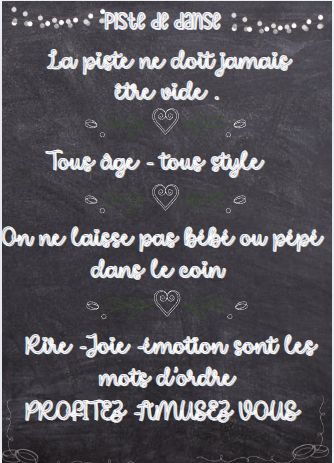 Piste de danse
La piste ne doit jamais
être vide .
Tous âge - tous style
On ne laisse pas bébé ou pépé
dans le coin
Rire -Joie -émotion sont les
mots d'ordre
PROFITEZ -AMUSEZ VOUS